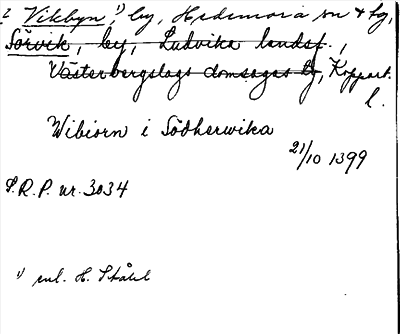 ? Vikbyn,¹) by, Hedemora sn & tg,
Sörvik, by, Ludvika landsf.,
Västerbergslags domsagas tg, Kopparb.
l.
Wibiorn i Södherwika
21/10 1399
S.R.P. nr. 3034
¹) enl. H. Ståhl